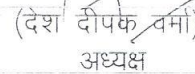 (देश दीपक वर्मा)
अध्यक्ष